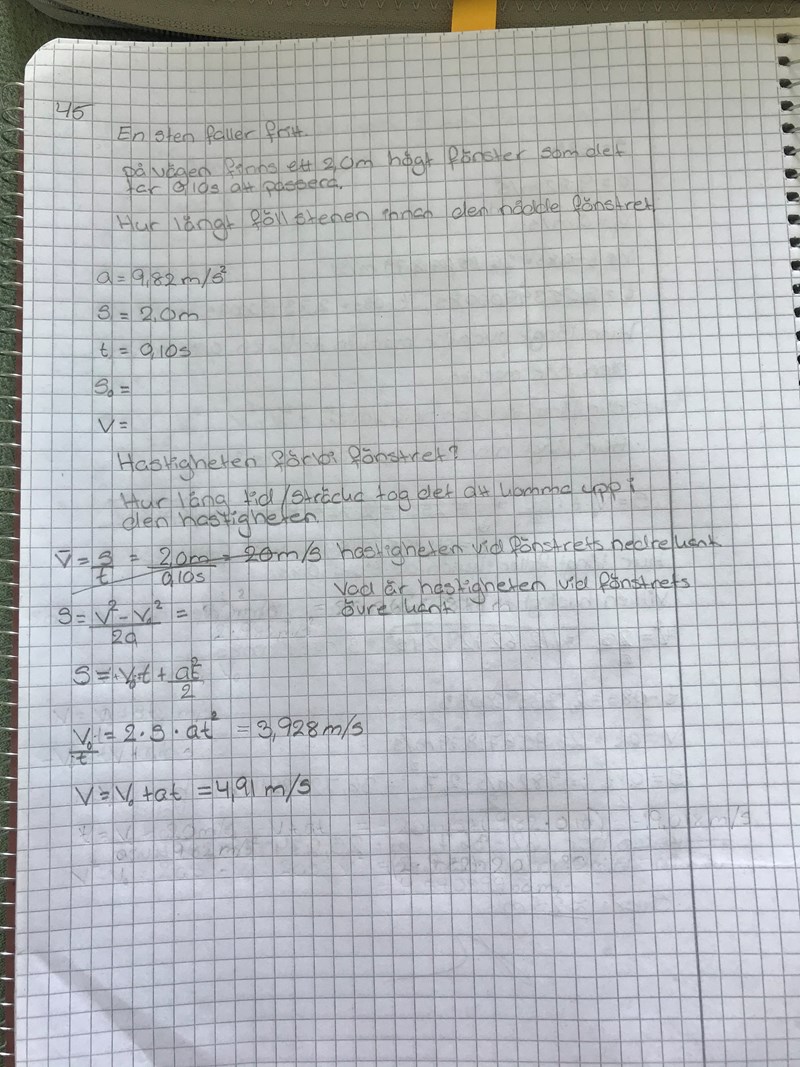 45
En sten faller fritt.
på vägen finns ett 2,0m högt fönster som det
tar 0,10s att passera.
Hur långt föll stenen innan den nådde fönstret
a = 9,82 m/s²
s = 2,0m
t = 0,10s
s₀ =
v =
Hastigheten förbi fönstret?
Hur lång tid/sträcka tog det att komma upp i
den hastigheten
v̄ = s/t = 2,0m/0,10s = 20m/s hastigheten vid fönstrets nedre kant
Vad är hastigheten vid fönstrets
övre kant
s = (v² - v₀²)/2a =
s = v₀t + at²/2
v₀/t = 2 · s · at² = 3,928 m/s
v = v₀ + at = 4,91 m/s